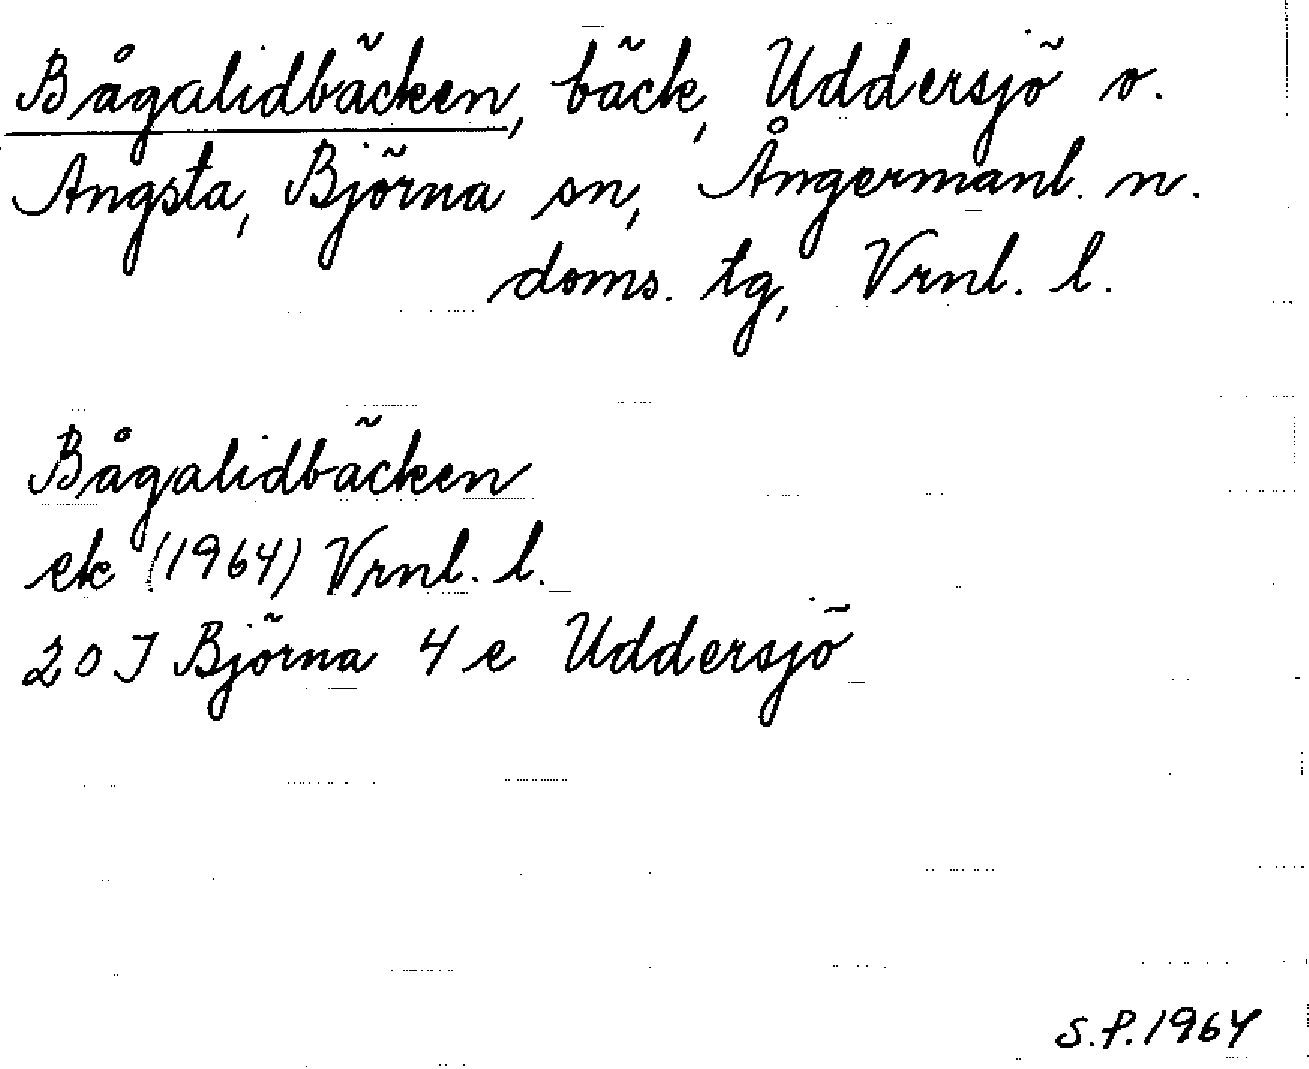 Bågalidbäcken, bäck, Uddersjö o.
Angsta, Björna sn, Ångermanl. n.
doms. tg, Vrnl. l.
Bågalidbäcken
ek (1964) Vrnl. l.
20 J Björna 4 e Uddersjö
S.P.1964